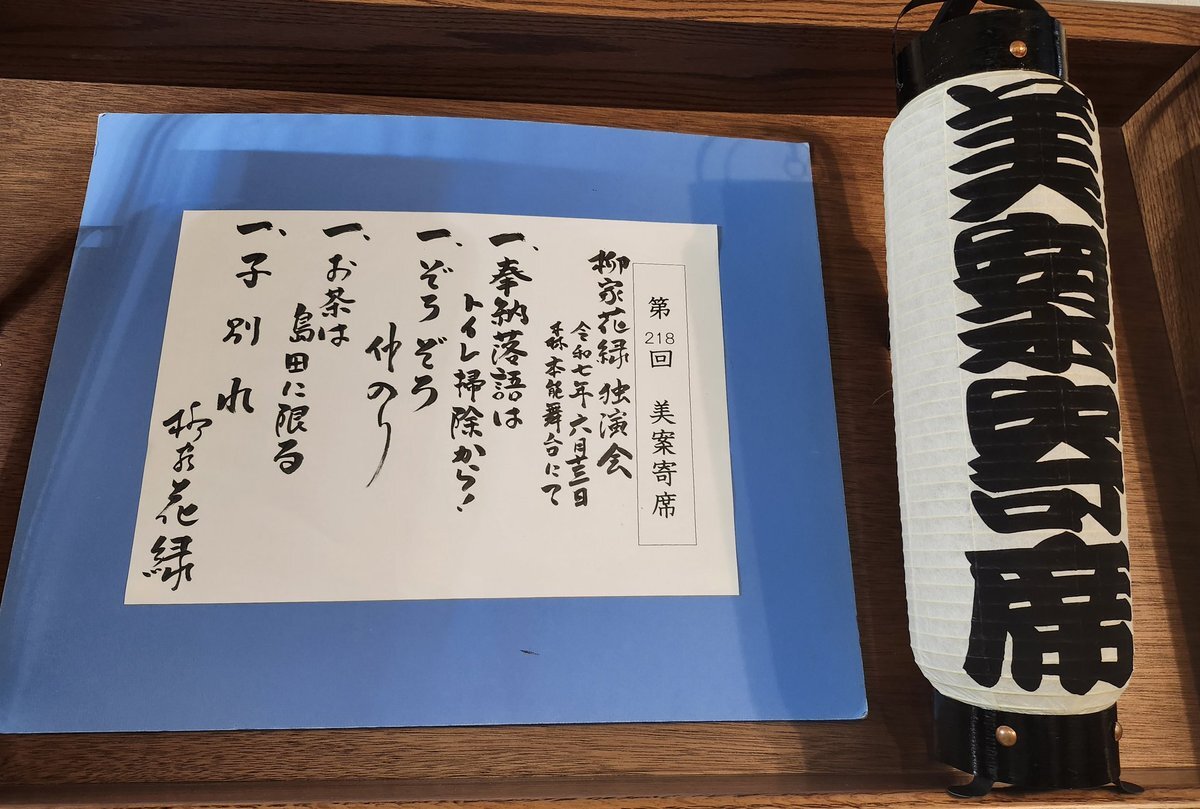 美案寄席
第218回　美案寄席
柳家花緑 独演会
令和七年六月十三日
森本能舞台にて
一、奉納落語は
トイレ掃除から!
一、ぞろぞろ
仲入り
一、お茶は
島田に限る
一、子別れ
柳家花緑